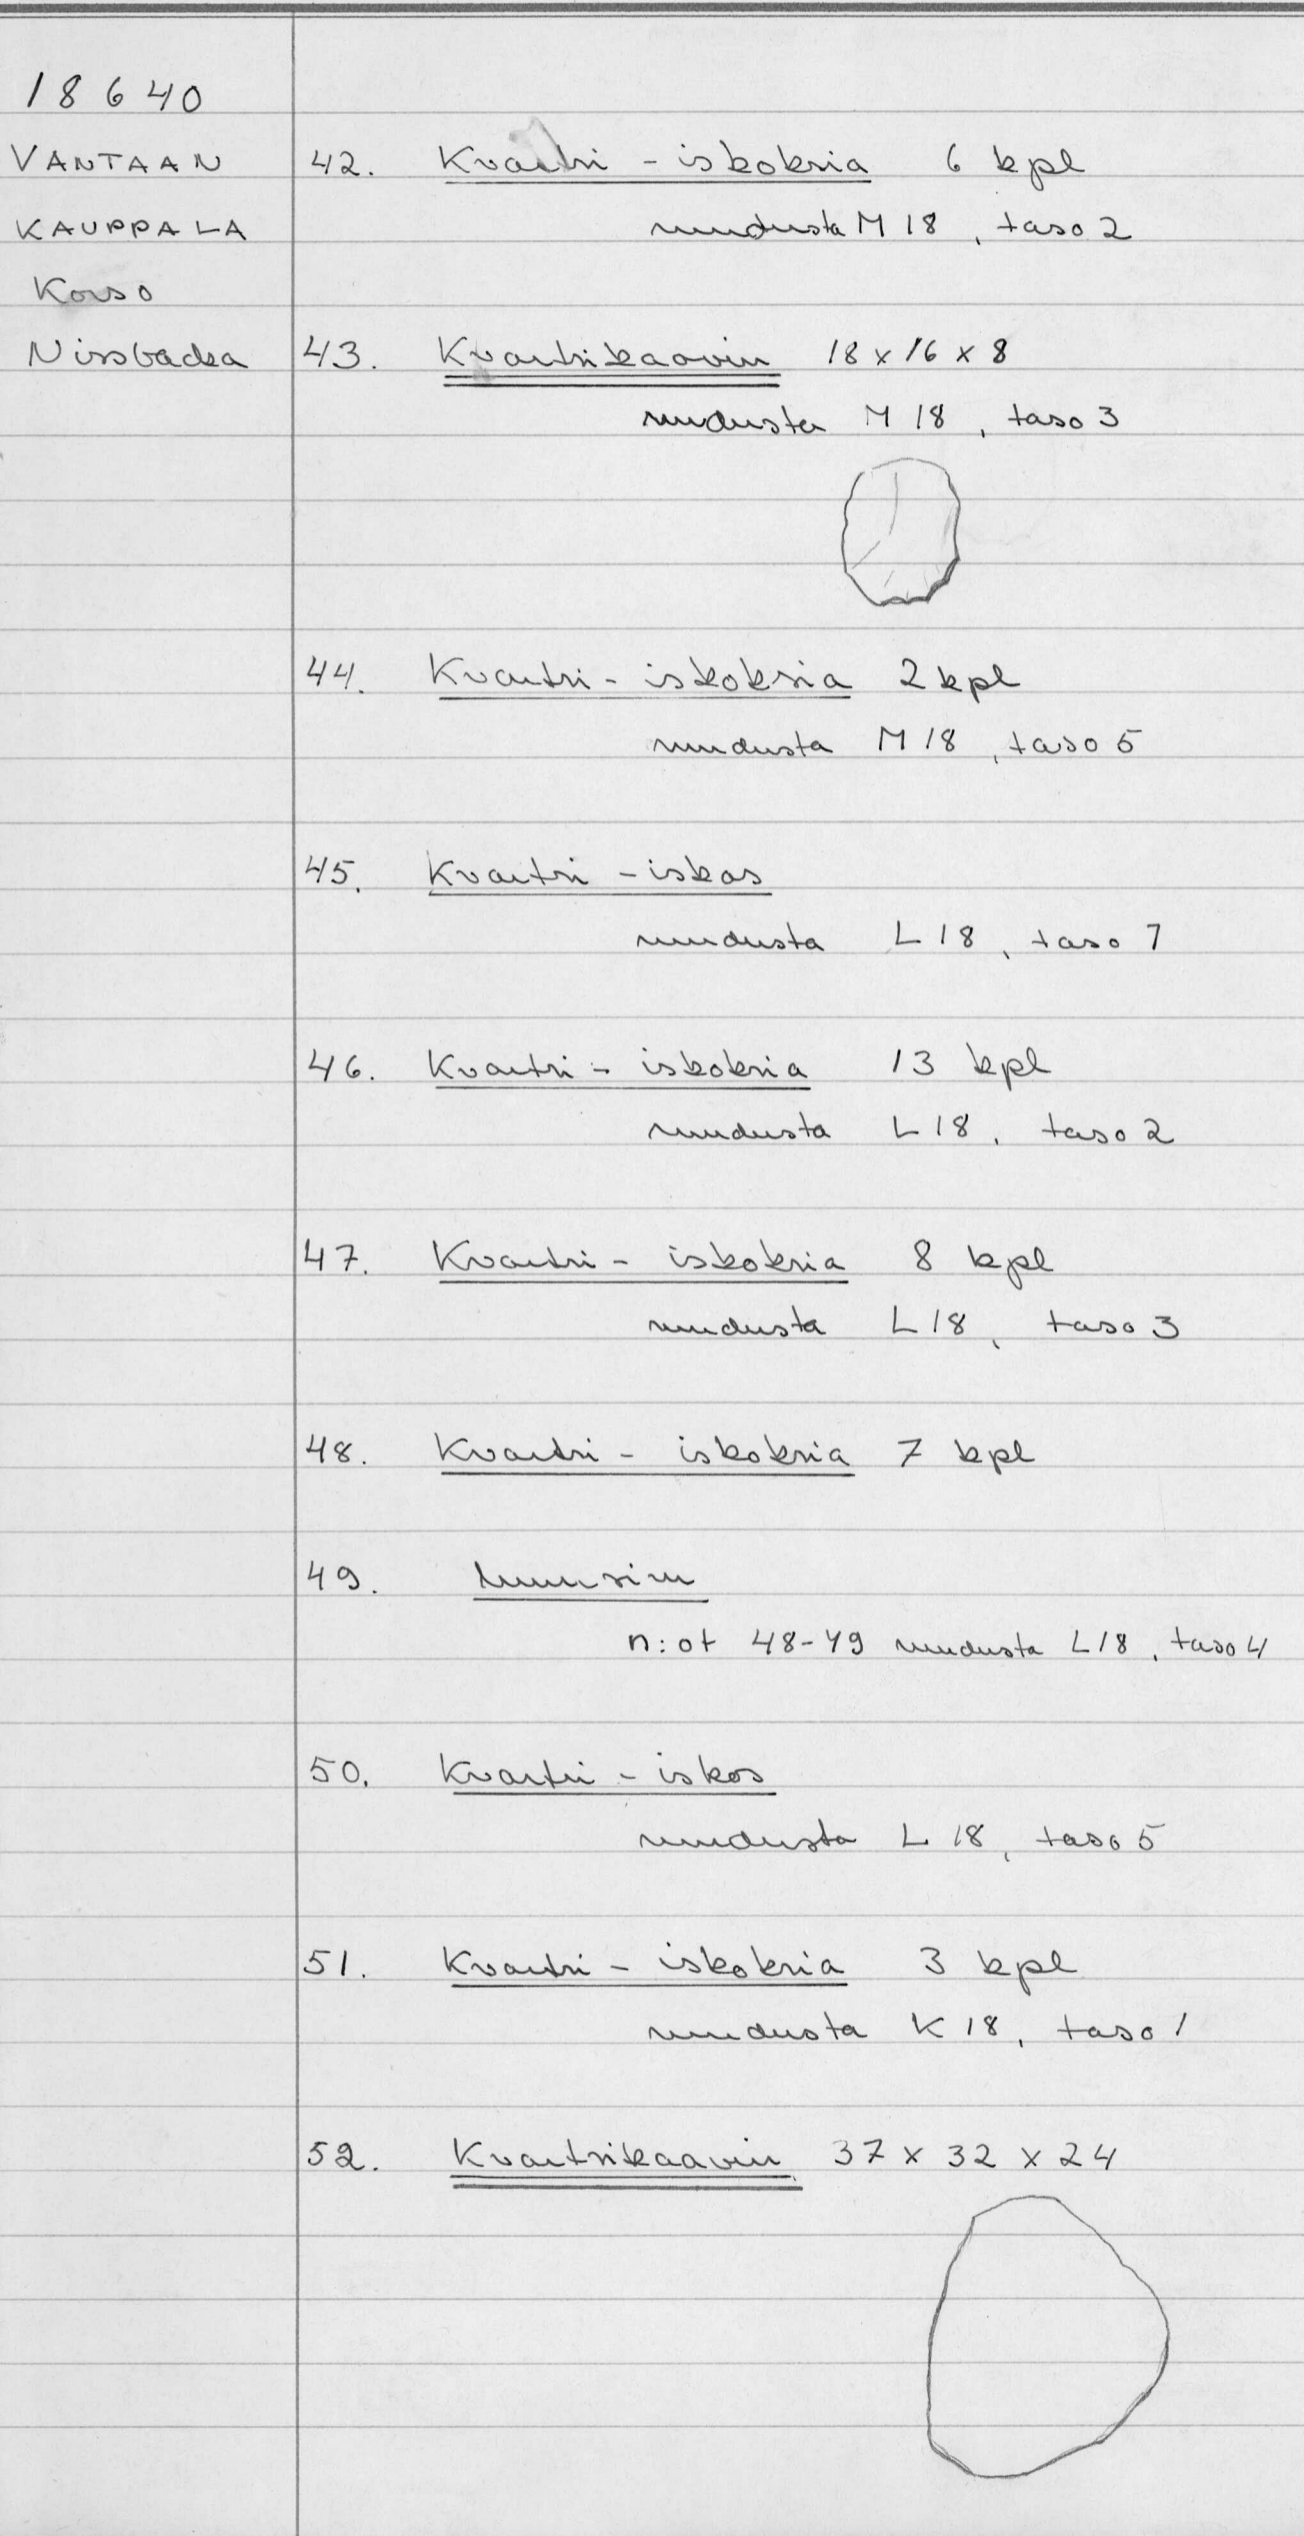 18640
VANTAAN
KAUPPALA
Korso
Nissbacka
42. Kvartsi-iskoksia 6 kpl
ruudusta M 18, taso 2
43. Kvartsikaavin 18 x 16 x 8
ruudusta M 18, taso 3
44. Kvartsi-iskoksia 2 kpl
ruudusta M 18, taso 5
45. Kvartsi-iskos
ruudusta L 18, taso 7
46. Kvartsi-iskoksia 13 kpl
ruudusta L 18, taso 2
47. Kvartsi-iskoksia 8 kpl
ruudusta L 18, taso 3
48. Kvartsi-iskoksia 7 kpl
49. Luunsiru
n:ot 48-49 ruudusta L 18, taso 4
50. Kvartsi-iskos
ruudusta L 18, taso 5
51. Kvartsi-iskoksia 3 kpl
ruudusta K 18, taso 1
52. Kvartsikaavin 37 x 32 x 24